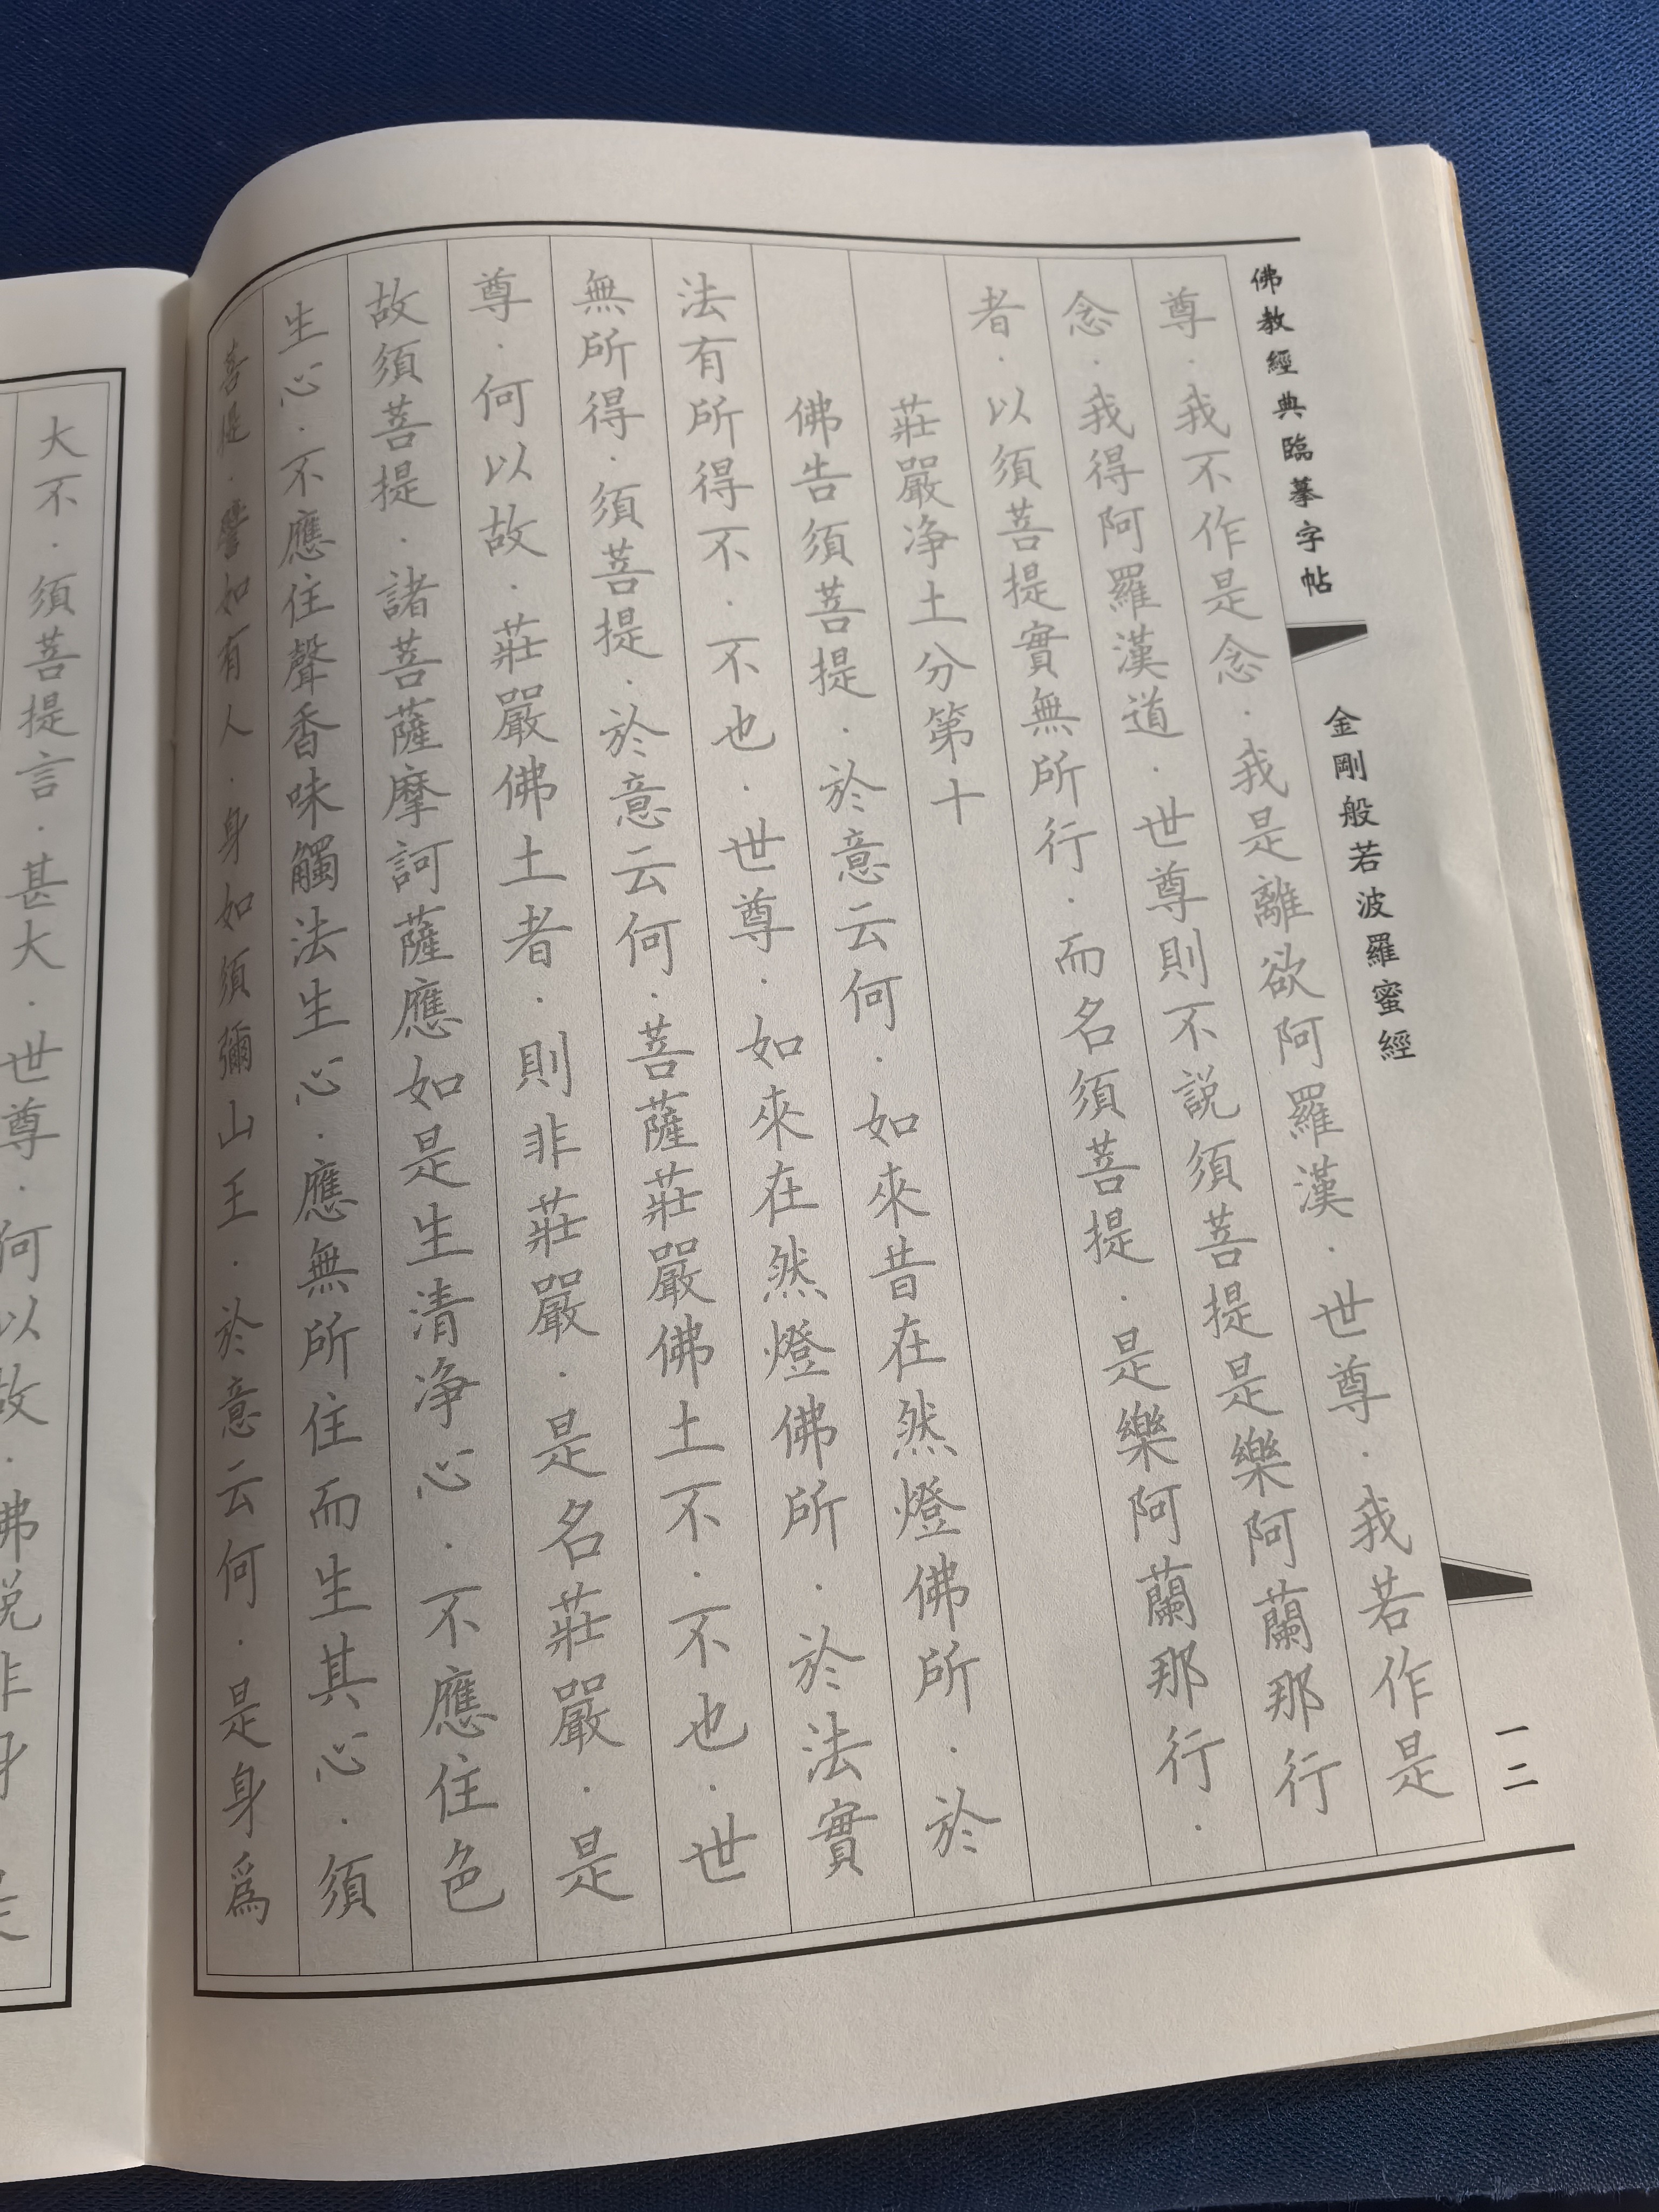 佛教經典臨摹字帖
金剛般若波羅蜜經
一二
尊·我不作是念·我是離欲阿羅漢·世尊·我若作是
念·我得阿羅漢道·世尊則不説須菩提是樂阿蘭那行
者·以須菩提實無所行·而名須菩提·是樂阿蘭那行·
莊嚴净土分第十
佛告須菩提·於意云何·如來昔在然燈佛所·於
法有所得不·不也·世尊·如來在然燈佛所·於法實
無所得·須菩提·於意云何·菩薩莊嚴佛土不·不也·世
尊·何以故·莊嚴佛土者·則非莊嚴·是名莊嚴·是
故須菩提·諸菩薩摩訶薩應如是生清净心·不應住色
生心·不應住聲香味觸法生心·應無所住而生其心·須
菩提·譬如有人·身如須彌山王·於意云何·是身爲
大不·須菩提言·甚大·世尊·何以故·佛説非身